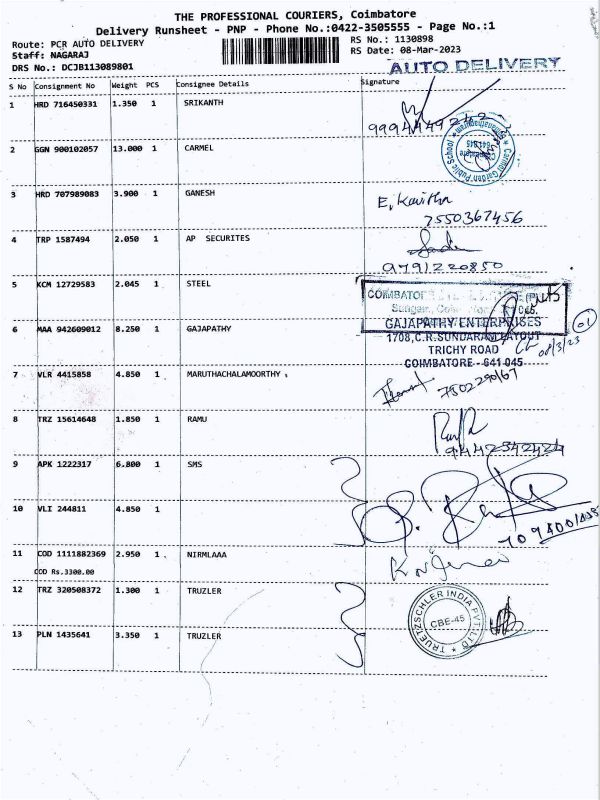 THE PROFESSIONAL COURIERS, Coimbatore
Delivery Runsheet - PNP - Phone No.:0422-3505555 - Page No.:1
Route: PCR AUTO DELIVERY
RS No.: 1130898
Staff: NAGARAJ
RS Date: 08-Mar-2023
DRS No.: DCJB113089801
AUTO DELIVERY
S No Consignment No Weight PCS Consignee Details Signature
1 HRD 716450331 1.350 1 SRIKANTH
2 GGN 900102057 13.000 1 CARMEL
Carmel Garden Public School
641045
3 HRD 707989083 3.900 1 GANESH
E. Kavitha
7550367456
4 TRP 1587494 2.050 1 AP SECURITES
9791220850
5 KCM 12729583 2.045 1 STEEL
COIMBATORE
6 MAA 942609012 8.250 1 GAJAPATHY
GAJAPATHY ENTERPRISES
1708,C.R.SUNDARAM LAYOUT
TRICHY ROAD
COIMBATORE - 641 045
01
08/3/23
7 VLR 4415858 4.850 1 MARUTHACHALAMOORTHY .
8 TRZ 15614648 1.850 1 RAMU
9442342424
9 APK 1222317 6.800 1 SMS
10 VLI 244811 4.850 1
11 COD 1111882369 2.950 1 NIRMLAAA
COD Rs.3300.00
12 TRZ 320508372 1.300 1 TRUZLER
TRUETZSCHLER INDIA PVT. LTD
CBE-45
13 PLN 1435641 3.350 1 TRUZLER